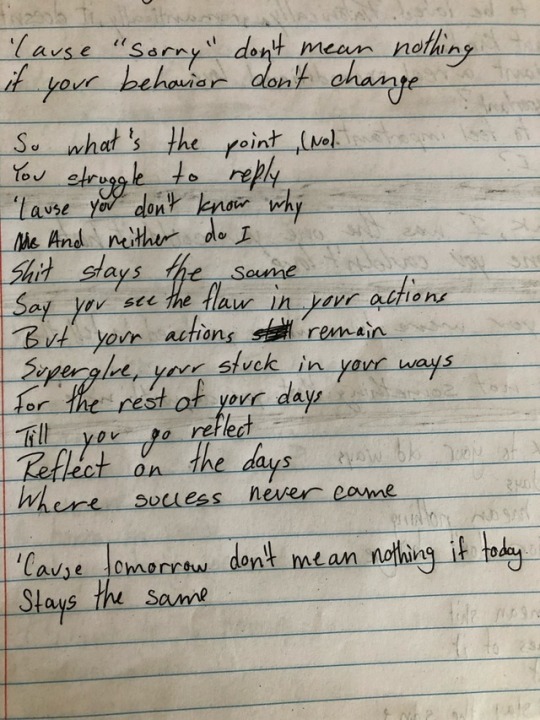 'Cause "Sorry" don't mean nothing
if your behavior don't change
So what's the point, (No).
You struggle to reply
'Cause you don't know why
And neither do I
Shit stays the same
Say you see the flaw in your actions
But your actions remain
Superglue, your stuck in your ways
For the rest of your days
Till you go reflect
Reflect on the days
Where success never came
'Cause tomorrow don't mean nothing if today
Stays the same